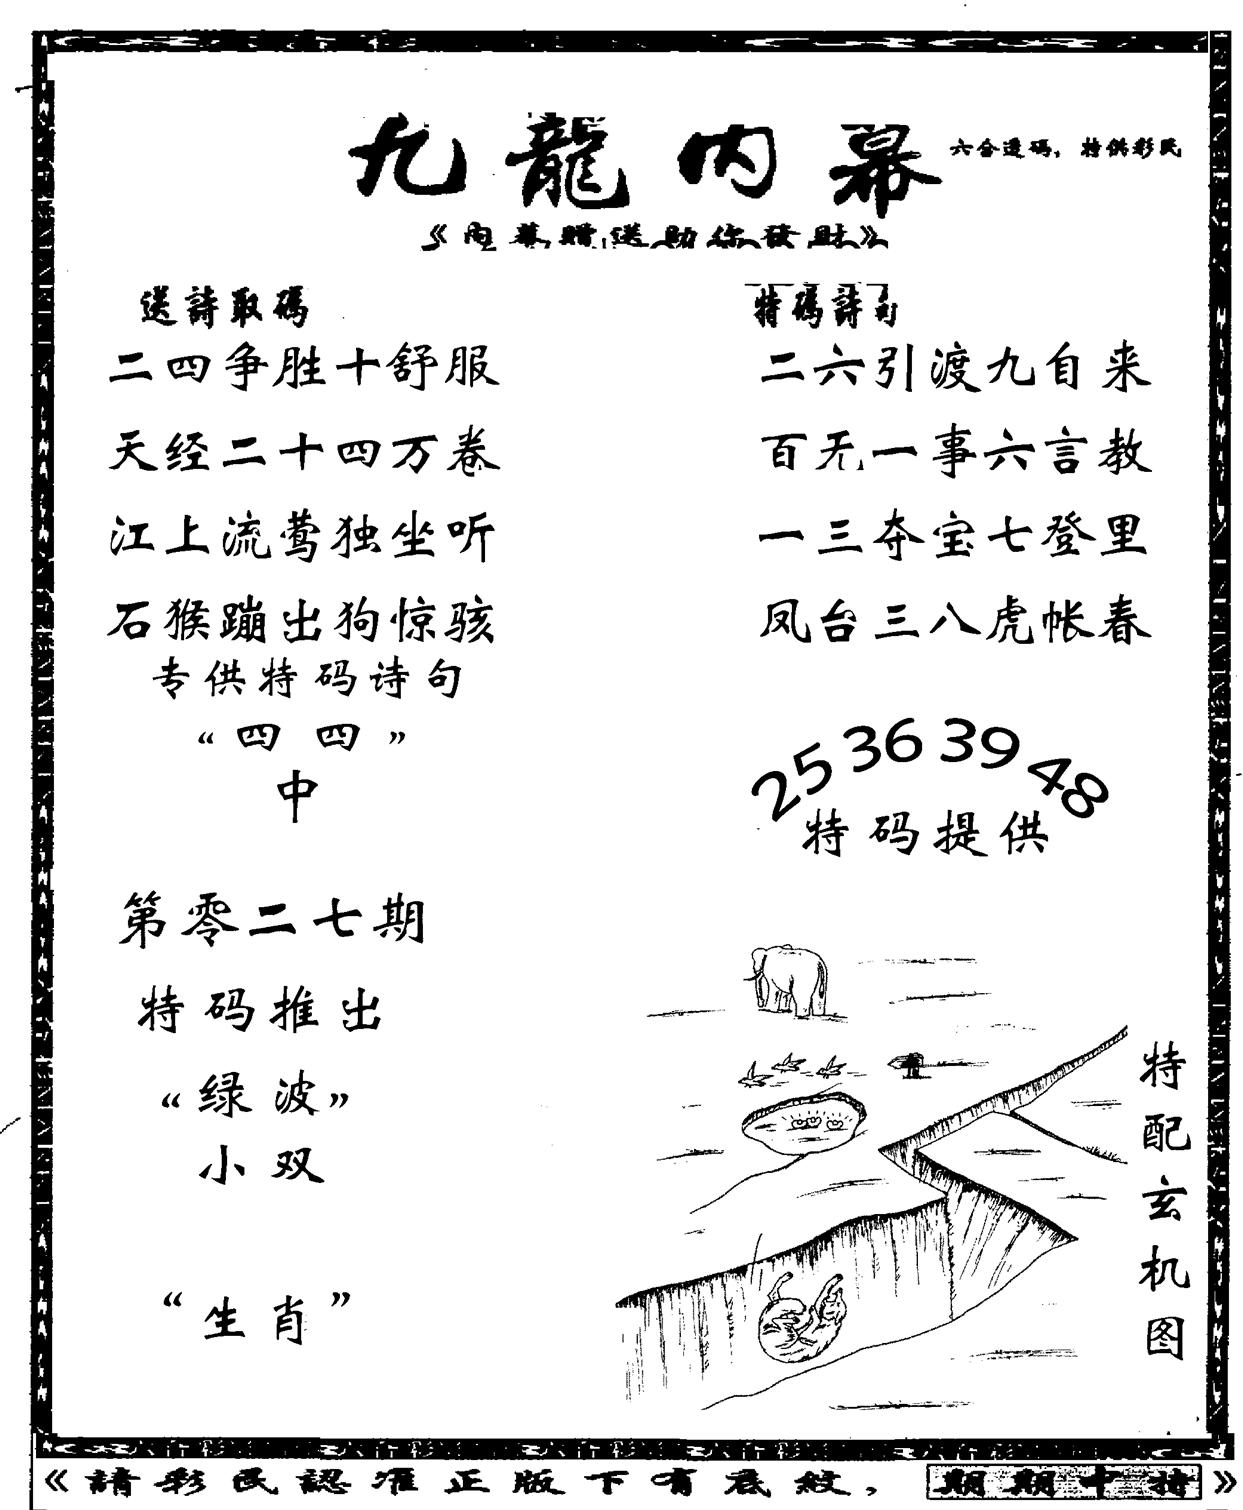 九龍内幕
六合透码，特供彩民
《内幕赠送助你發財》
送詩取碼
二四争胜十舒服
天经二十四万卷
江上流莺独坐听
石猴蹦出狗惊骇
专供特码诗句
“四四”
中
第零二七期
特码推出
“绿波”
小双
“生肖”
特碼詩句
二六引渡九自来
百无一事六言教
一三夺宝七登里
凤台三八虎帐春
25 36 39 48
特码提供
特配玄机图
《請彩民認准正版下有底紋，期期中特》